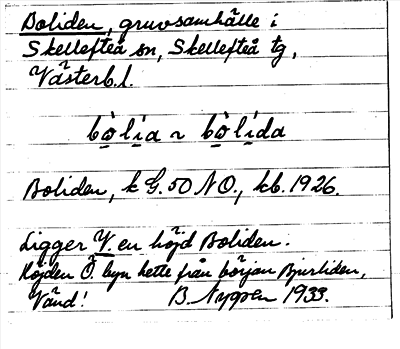 Boliden, gruvsamhälle i
Skellefteå sn, Skellefteå tg,
Västerb. l.
bòlia ~ bòlida
Boliden, k G. 50 NO., kb. 1926.
Ligger V. en höjd Boliden.
Höjden Ö. byn hette från början Bjurliden,
Vänd! B. Nygren 1933.